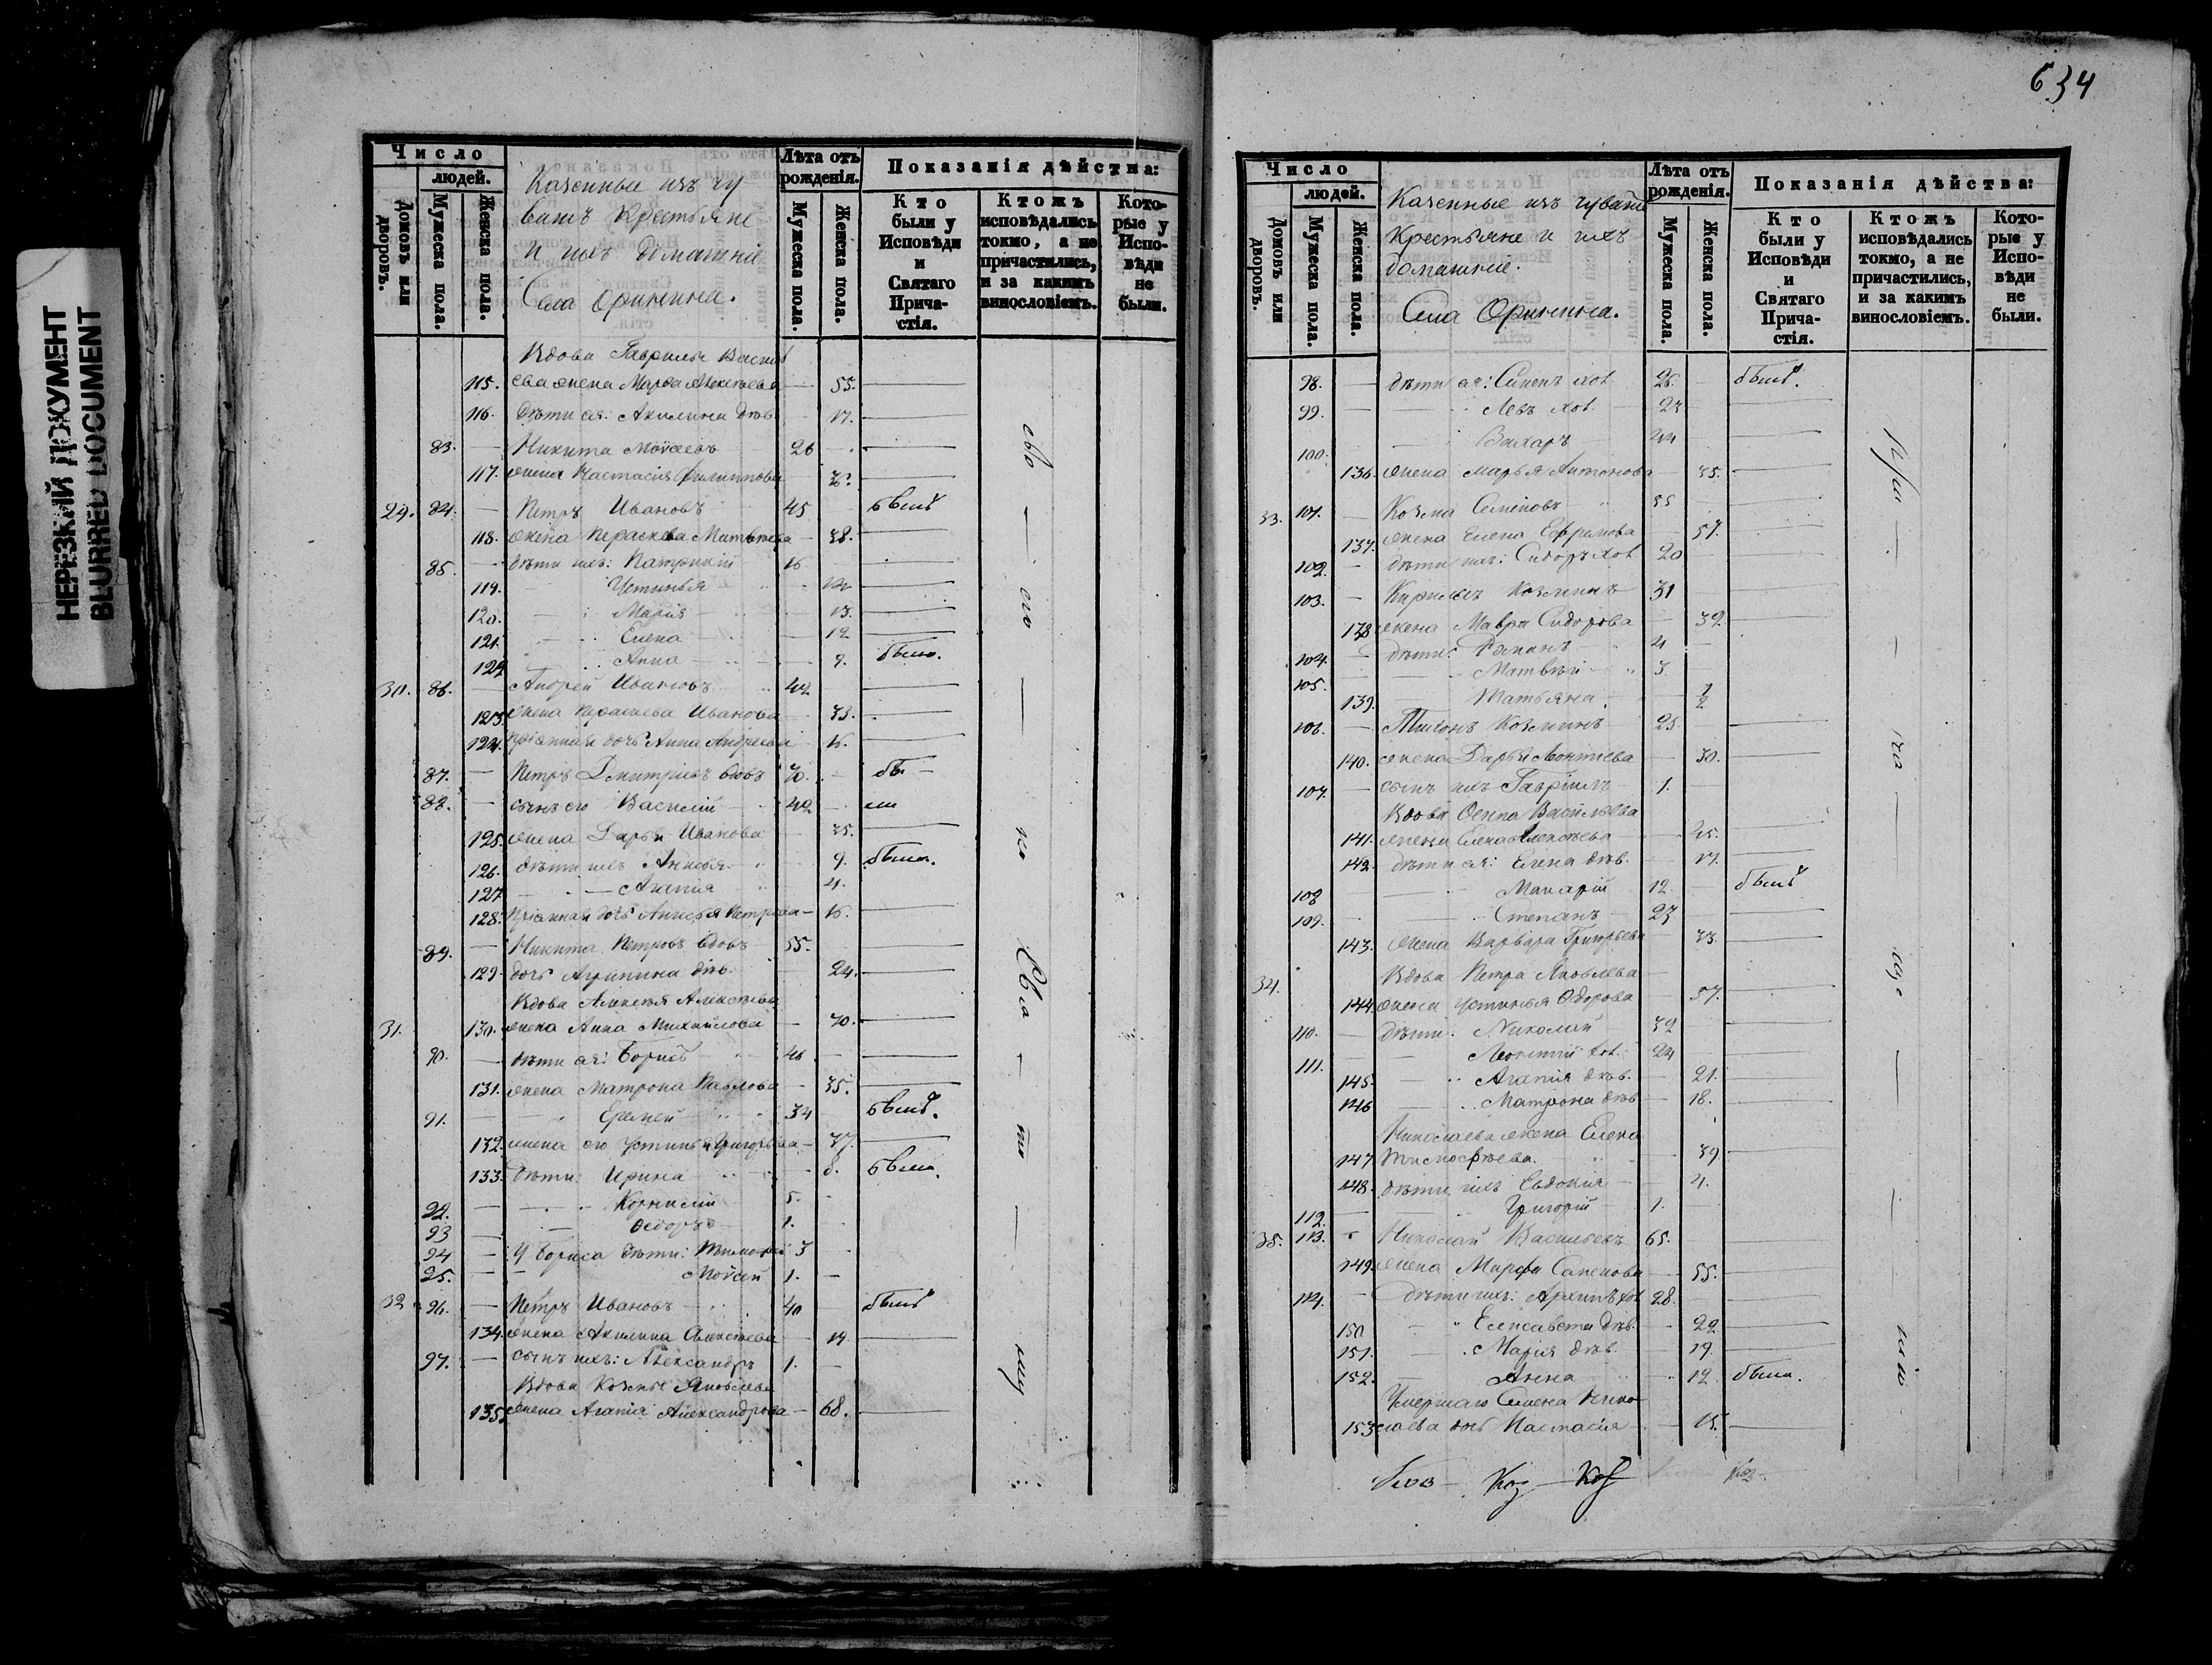 НЕРЕЗКИЙ ДОКУМЕНТ
BLURRED DOCUMENT
Число
людей.
Домовъ или дворовъ.
Мужеска пола.
Женска пола.
Казенные изъ чу-
вашъ крестьяне
и ихъ домашніе
Села Оринина.
Лѣта отъ рожденія.
Мужеска пола.
Женска пола.
Показанія дѣйства:
Кто были у Исповѣди и Святаго Прича-стія.
Ктожъ исповѣдались токмо, а не причастились, и за какимъ винословіемъ.
Кото-рые у Испо-вѣди не были.
Вдова Гаврилы Васил
115. ева жена Марѳа Алексѣева 55.
116. дѣти ея: Акилина дѣв. 17.
83. Никита Моисеевъ 26
117. жена Настасія Филиппова
29. 84. Петръ Ивановъ 45 былъ
118. жена Параскева Матвѣева 38.
85. дѣти ихъ: Патрикій 16
119. Устинья
120. Марія 13.
121. Елена 12
122. Анна 9. была.
30. 86. Андрей Ивановъ 42
123. жена Ивановa 33.
124. пріемная дочь Анна Андреева 16.
87. Петръ Дмитріевъ вдовъ 70. бы-
88. сынъ его Василій 42 ли
125. жена Дарья Иванова 35.
126. дѣти ихъ 9. была.
127 Агапія 4.
128. пріемная дочь Петрова 16.
89. Никита Петровъ вдовъ 55.
129. дочь Агрипина дѣв. 24.
Вдова Алексѣя Алексѣева
31. 130. жена Анна Михайлова 70.
90. дѣти ея: Борисъ 46
131. жена Матрона Павлова 35.
91. Еремей 34 былъ.
132. жена его Устинья Григорьева 37.
133. дѣти: Ирина 8. была.
92. Корнилій 5.
93 Ѳедоръ 1.
94 У Бориса дѣти: Тимоѳей 3
95. Мойсей 1.
32 96. Петръ Ивановъ 40 былъ
134. жена Акилина Алексѣева 19.
97. сынъ ихъ: Александръ 1.
Вдова Козмы Яковлева
135. жена Агапія Александрова 68.
634
Число
людей.
Домовъ или дворовъ.
Мужеска пола.
Женска пола.
Казенные изъ чувашъ
крестьяне и ихъ
домашніе.
Села Оринина.
Лѣта отъ рожденія.
Мужеска пола.
Женска пола.
Показанія дѣйства:
Кто были у Исповѣди и Святаго Прича-стія.
Ктожъ исповѣдались токмо, а не причастились, и за какимъ винословіемъ.
Кото-рые у Испо-вѣди не были.
98. дѣти ея: хол. 26. былъ.
99. Левъ хол. 23
100. Захаръ 44
136. жена Марья Антонова 35.
33. 101. Козма Семеновъ 55
137. жена Елена Ефремова 57.
102. дѣти ихъ: Сидоръ хол. 20
103. Кириллъ Козминъ 31
138 жена Мавра Сидорова 32
104. дѣти: Романъ 4
105. Матвѣй 3.
139. Татьяна 1/2
106. Тихонъ Козминъ 25
140. жена Дарья Леонтіева 30.
107. сынъ ихъ Гавріилъ 1.
Вдова Осипа Васильева
141. жена Елена Алексѣева 45.
142. дѣти ея: Елена дѣв. 17.
108 Макарій 12. былъ
109. Степанъ 23
143. жена Варвара Григорьева 33.
34. Вдова Петра Яковлева
144. жена Устинья Ѳедорова 57.
110. дѣти: Николай 32
111. Леонтій хол. 24
145. Агапія дѣв. 21.
146 Матрона дѣв. 18.
Николаева жена Елена
147. Тимоѳѣева. 39
148. дѣти ихъ Евдокія 4.
112. Григорій 1.
35. 113. Николай Васильевъ 65.
149. жена Марѳа Семенова 55.
114. дѣти ихъ: Архипъ хол 28.
150 Елисавета дѣв. 22
151. Марія дѣв. 19.
152. Анна 12 была.
Умершаго Семена Нико-
153 лаева дочь Настасія 15.